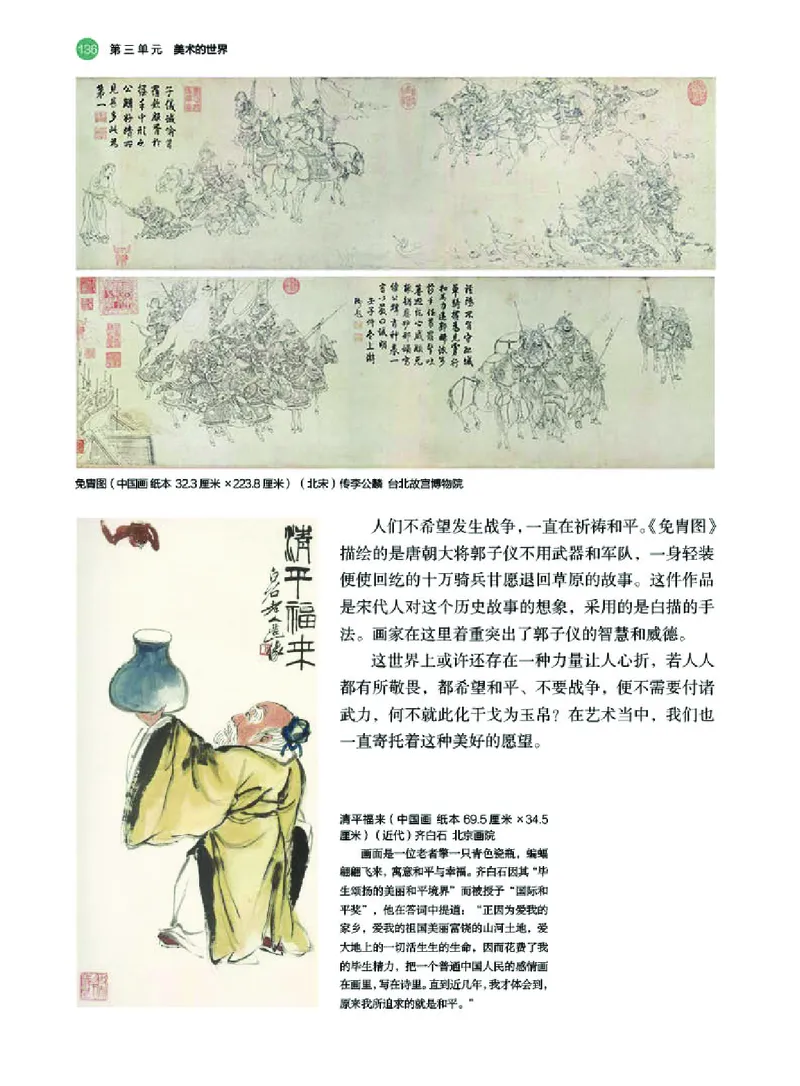 136 第三单元 美术的世界
免胄图（中国画 纸本 32.3厘米×223.8厘米）（北宋）传李公麟 台北故宫博物院
人们不希望发生战争，一直在祈祷和平。《免胄图》
描绘的是唐朝大将郭子仪不用武器和军队，一身轻装
便使回纥的十万骑兵甘愿退回草原的故事。这件作品
是宋代人对这个历史故事的想象，采用的是白描的手
法。画家在这里着重突出了郭子仪的智慧和威德。
这世界上或许还存在一种力量让人心折，若人人
都有所敬畏，都希望和平、不要战争，便不需要付诸
武力，何不就此化干戈为玉帛？在艺术当中，我们也
一直寄托着这种美好的愿望。
清平福来
清平福来（中国画 纸本 69.5厘米×34.5
厘米）（近代）齐白石 北京画院
画面是一位老者擎一只青色瓷瓶，蝙蝠
翩翩飞来，寓意和平与幸福。齐白石因其“毕
生颂扬的美丽和平境界”而被授予“国际和
平奖”，他在答词中提道：“正因为爱我的
家乡，爱我的祖国美丽富饶的山河土地，爱
大地上的一切活生生的生命，因而花费了我
的毕生精力，把一个普通中国人民的感情画
在画里，写在诗里。直到近几年，我才体会到，
原来我所追求的就是和平。”